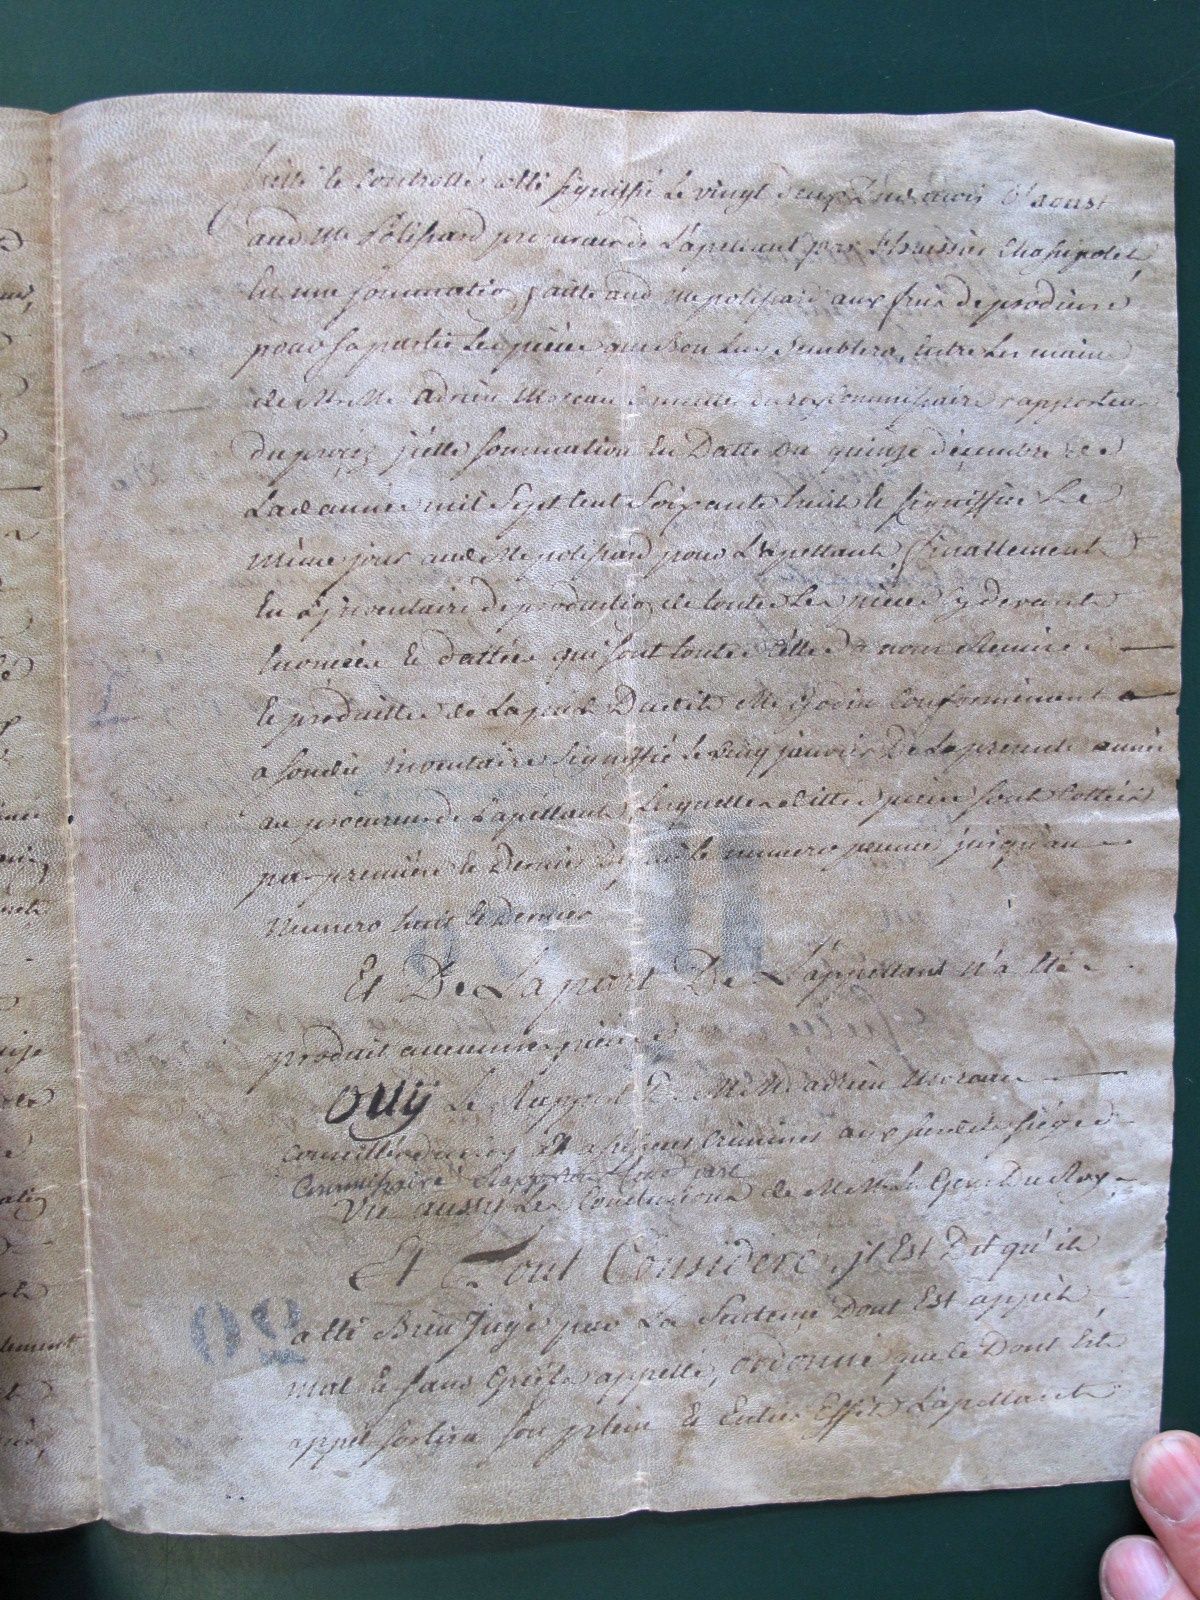 et Controllé a été signiffié le vingt deux dud. mois d'aoust
aud Me Polissard procureur de L'apellant par Huissier
une sommation faitte aud Me polissard aux fins de produire
pour sa partie Les pièces que bon Luy Semblera, Entre Les mains
de Mr Me adrien Moreau Conseiller du roy Commissaire rapporteur
du procez jcelle sommation En Datte du quinze décembre de
Lad année mil Sept Cent Soixante huit & signiffiée Le
même jour aud Me polissard pour L'apellant, finallement
En L'jnventaire de production de toutes Les pièces cy devant
Enoncées & dattées qui sont toutes celles à nous Remises
& produittes de La part Dudit Me Godin Conformément
a sondit jnventaire signiffié le cinq janvier De La presente année
au procureur de L'apellant, Lesquelles dittes pièces sont Cottées
par première & Dernière depuis le numero premier jusqu'au
Numero huit & dernier
Et De La part De L'appellant N'a été
produit aucunnes pièces
OUÿ Le Rapport De Mr Me adrien Moreau
Conseiller du roy & assesseur Criminel aux susdits sièges
Commissaire Rapporteur en cette part
Vu aussy Les Conclusions de Mr Me Le Gens Du Roy
Et Tout Consideré, jl Est Dit qu'il
a été Bien Jugé par La Sentence Dont Est appel,
mal & sans Griefs appellé, ordonné que ce Dont Est
appel sortira son plein & Entier Effet L'apellant
20